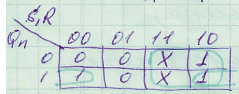 S,R
Qn 00 01 11 10
0 0 0 X 1
1 1 0 X 1